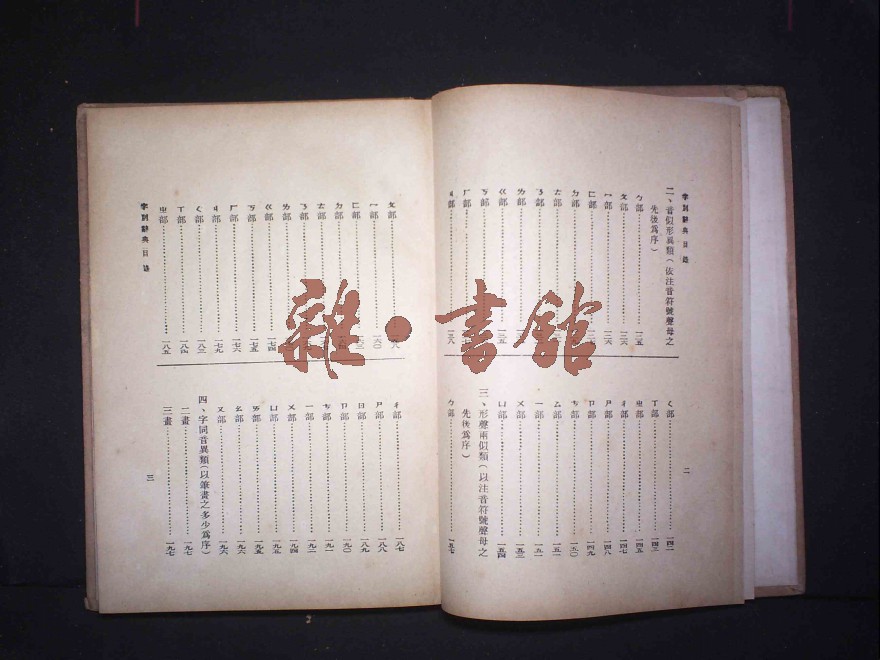 字別辭典目錄
二、音似形異類(依注音符號聲母之
先後爲序)
ㄅ部 一二五
ㄆ部 一二六
ㄇ部
ㄈ部
ㄉ部
ㄊ部
ㄋ部
ㄌ部
ㄍ部 一三五
ㄎ部
ㄏ部
ㄐ部 一三八
ㄑ部 一四一
ㄒ部 一四三
ㄓ部 一四五
ㄔ部 一四七
ㄕ部 一四八
ㄗ部 一四九
ㄘ部 一五〇
ㄙ部 一五一
ㄧ部 一五一
ㄨ部 一五三
ㄩ部 一五四
三、形聲兩似類(以注音符號聲母之
先後爲序)
ㄅ部 一五七
二
ㄆ部
ㄇ部 一六〇
ㄈ部
ㄉ部
ㄊ部
ㄋ部
ㄌ部
ㄍ部 一七四
ㄎ部 一七五
ㄏ部 一七六
ㄐ部 一七九
ㄑ部 一八三
ㄒ部 一八四
ㄓ部 一八五
字別辭典目錄
ㄔ部 一八七
ㄕ部 一八八
ㄖ部 一八九
ㄗ部 一九〇
ㄘ部 一九一
ㄧ部 一九二
ㄨ部 一九四
ㄩ部 一九五
ㄞ部 一九五
ㄠ部 一九六
ㄡ部 一九六
四、字同音異類(以筆畫之多少爲序)
二畫 一九七
三畫 一九七
三
雜·書館